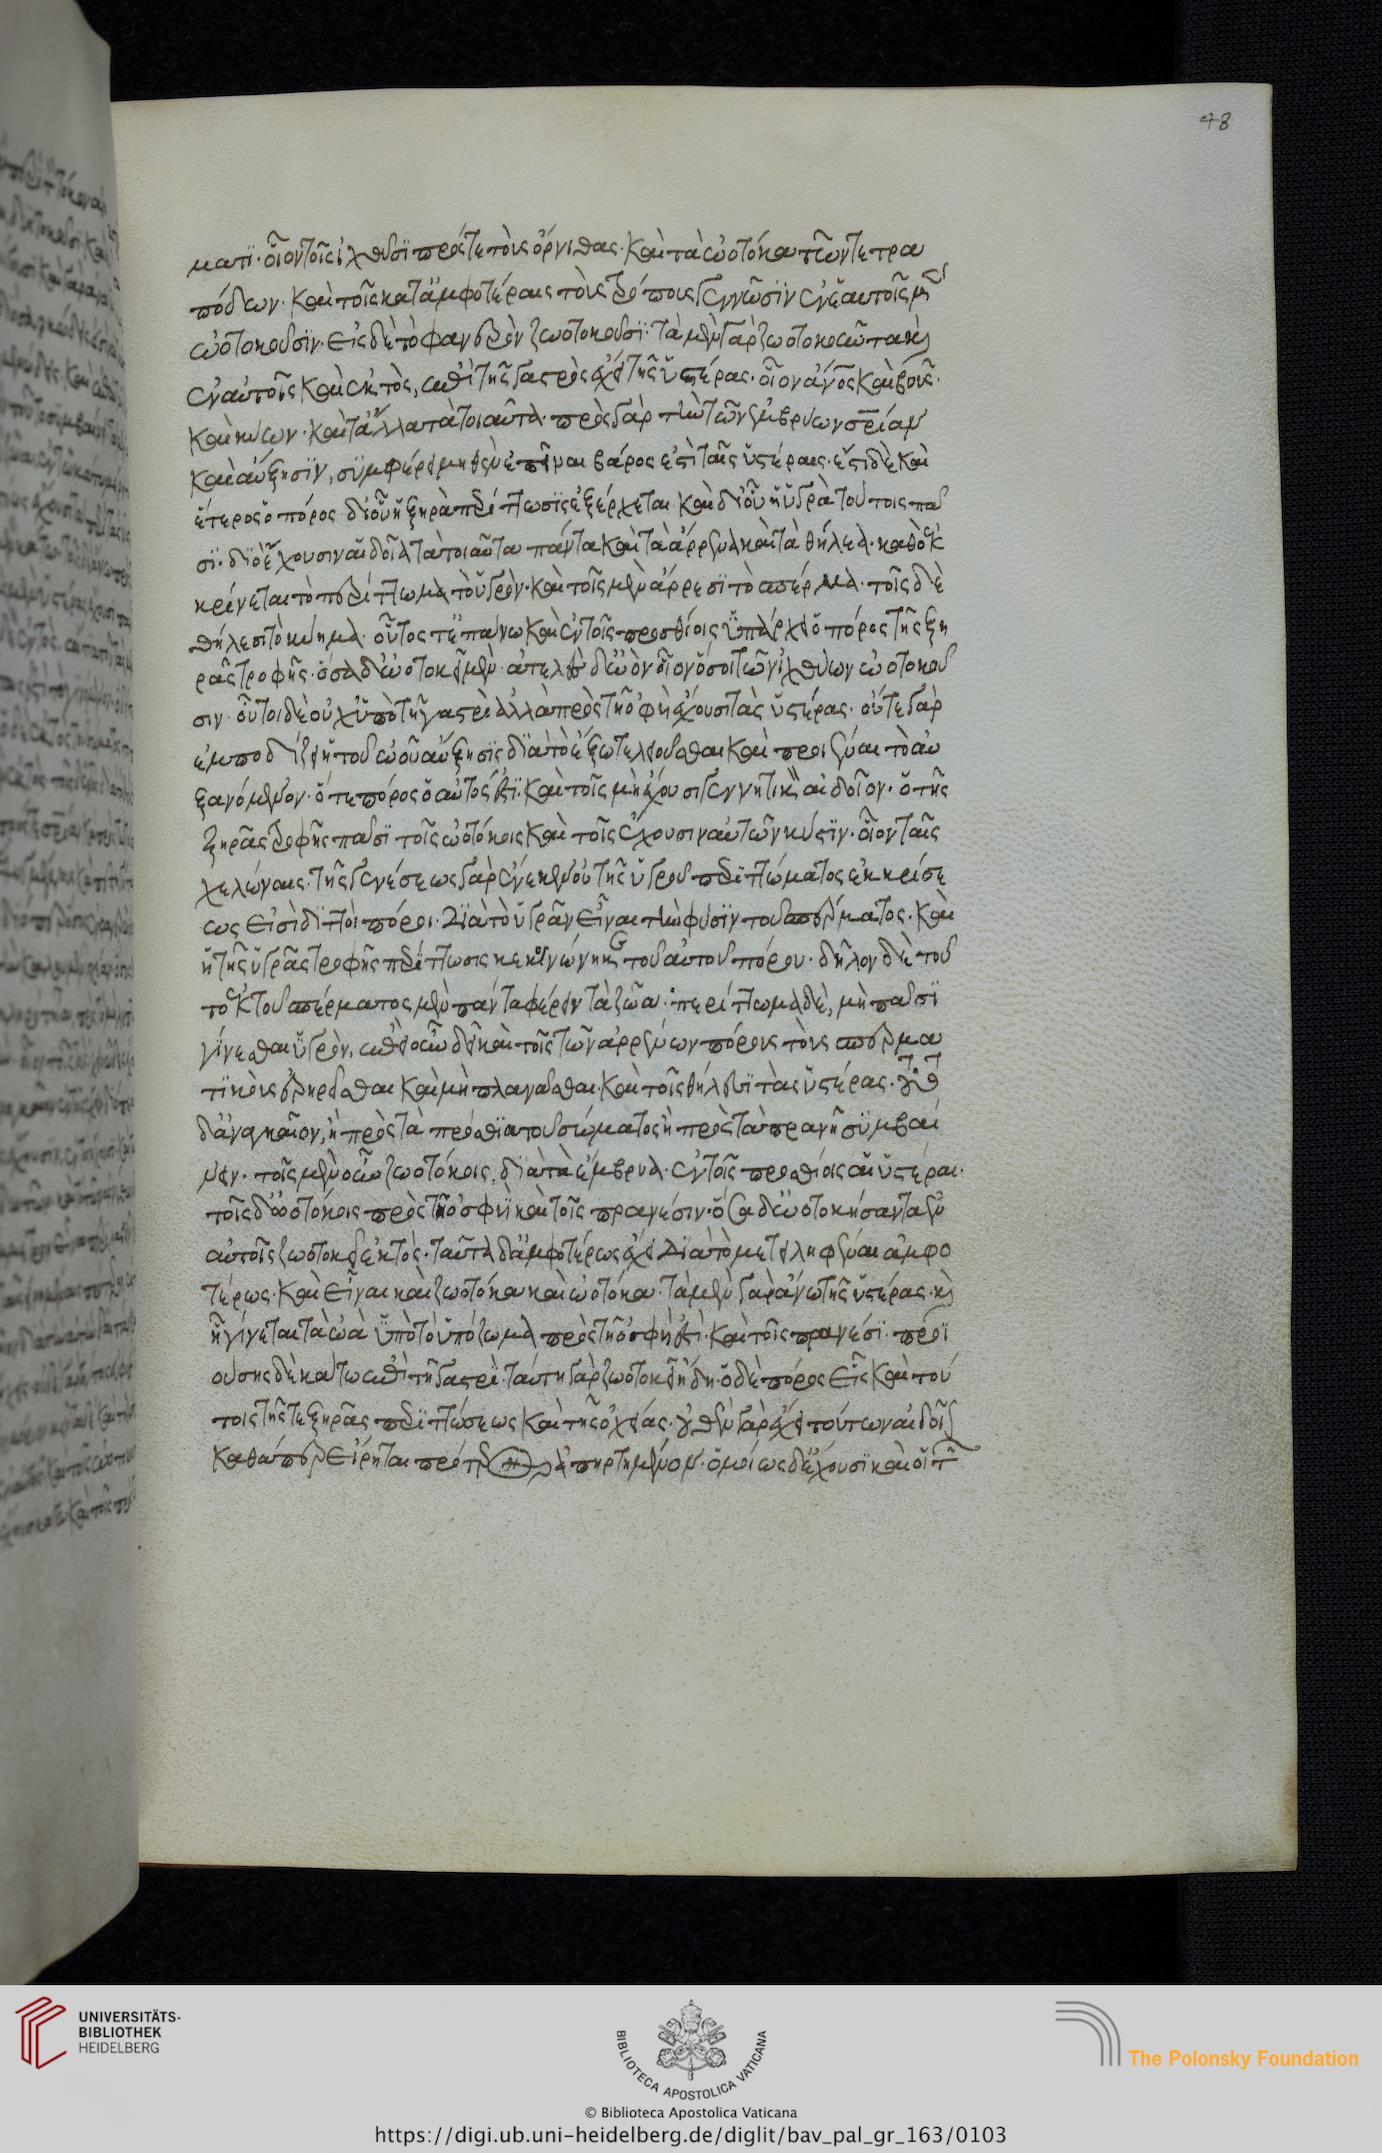 48
ματι· οἷον τοῖς ἰχθύσι πρός τε τοὺς ὄρνιθας· καὶ τὰ ὠοτόκα τῶν τετρα
πόδων· καὶ τοῖς κατ' ἀμφοτέρους τοὺς τρόπους γεννῶσιν ἐν ἑαυτοῖς μὲν
ὠοτοκοῦσιν· εἰς δὲ τὸ φανερὸν ζωοτοκοῦσι· τὰ μὲν γὰρ ζωοτοκοῦντα καὶ
ἐν αὐτοῖς καὶ ἐκτὸς, ἐπὶ τῆς γαστρὸς ἔχει τῆς ὑστέρας· οἷον ἄνος καὶ βοῦς·
καὶ κύων· καὶ τἄλλα τὰ τοιαῦτα· πρὸς γὰρ τὴν τῶν ἐμβρύων σρίαν
καὶ αὔξησιν, συμφέρει μηθὲν ἐπεῖναι βάρος ἐπὶ ταῖς ὑστέραις· ἔστι δὲ καὶ
ἕτερος ὁ πόρος· δι' οὗ ἡ ξηρὰ περίττωσις ἐξέρχεται καὶ δι' οὗ ἡ ὑγρὰ τούτοις πᾶ
σι· διὸ ἔχουσιν αἰδοῖα τὰ τοιαῦτα πάντα καὶ τὰ ἄρρενα καὶ τὰ θήλεα· καθὸ ἐκ
κρίνεται τὸ περίττωμα τὸ ὑγρὸν· καὶ τοῖς μὲν ἄρρεσι τὸ σπέρμα· τοῖς δὲ
θήλεσι τὸ κύημα· οὗτος τ' ἐπάνω καὶ ἐν τοῖς προσθίοις ὑπάρχει ὁ πόρος τῆς ξη
ρᾶς τροφῆς· ὅσα δ' ὠοτοκεῖ μὲν· ἀτελὲς δ' ὠὸν οἷον ὅσοι τῶν ἰχθύων ὠοτοκοῦ
σιν· οὗτοι δὲ οὐχ ὑπὸ τῇ γαστρὶ ἀλλὰ πρὸς τῇ ὀσφύϊ ἔχουσι τὰς ὑστέρας· οὔτε γὰρ
ἐμποδίζει ἡ τοῦ ὠοῦ αὔξησις διὰ τὸ ἔξω τελειοῦσθαι καὶ προϊέναι τὸ αὐ
ξανόμενον· ὅ τε πόρος ὁ αὐτός ἐστι· καὶ τοῖς μὴ ἔχουσι γεννητικὸν αἰδοῖον· ὁ τῆς
ξηρᾶς τροφῆς πᾶσι τοῖς ὠοτόκοις καὶ τοῖς ἔχουσιν αὐτῶν κύστιν· οἷον ταῖς
χελώναις· τῆς γενέσεως γὰρ ἕνεκεν οὐ τῆς ὑγροῦ περιττώματος ἐκκρίσε
ως εἰσὶ διττοὶ πόροι· διὰ τὸ ὑγρὰν εἶναι τὴν φύσιν τοῦ σπέρματος· καὶ
ἡ τῆς ὑγρᾶς τροφῆς περίττωσις κεκοινώνηκε τοῦ αὐτοῦ πόρου· δῆλον δὲ τοῦ
το ἐκ τοῦ σπέρματος μὲν πάντα φέρειν τὰ ζῶα· περίττωμα δὲ, μὴ πᾶσι
γίνεσθαι ὑγρὸν, ἐπεὶ οὖν δεῖ καὶ τοῖς τῶν ἀρρένων πόρους τοὺς σπερμα
τικοὺς ἐρηρεῖσθαι καὶ μὴ πλανᾶσθαι· καὶ τοῖς θήλεσι τὰς ὑστέρας·
δ' ἀναγκαῖον, ἢ πρὸς τὰ πρόσθια τοῦ σώματος ἢ πρὸς τὰ πρανῆ συμβαί
νειν· τοῖς μὲν οὖν ζωοτόκοις, διὰ τὰ ἔμβρυα· ἐν τοῖς προσθίοις αἱ ὑστέραι·
τοῖς δ' ὠοτόκοις πρὸς τῇ ὀσφύϊ καὶ τοῖς πρανέσιν· ὅσα δ' ὠοτοκήσαντα ἐν
αὐτοῖς ζωοτοκεῖ ἐκτὸς· ταῦτα δ' ἀμφοτέρως ἔχει διὰ τὸ μετειληφέναι ἀμφο
τέρως· καὶ εἶναι καὶ ζωοτόκα καὶ ὠοτόκα· τὰ μὲν γὰρ ἄνω τῆς ὑστέρας· καὶ
ᾗ γίνεται τὰ ὠὰ ὑπὸ τὸ ὑπόζωμα πρὸς τῇ ὀσφύϊ ἐστὶ· καὶ τοῖς πρανέσι· προϊ
ούσης δὲ κάτω ἐπὶ τῇ γαστρὶ· ταύτῃ γὰρ ζωοτοκεῖ ἤδη· ὁ δὲ πόρος εἷς καὶ τού
τοις τῆς τε ξηρᾶς περιττώσεως καὶ τῆς ὀχείας· οὐθὲν γὰρ ἔχει τούτων αἰδοῖον
καθάπερ εἴρηται πρότερον ἀπηρτημένον· ὁμοίως δ' ἔχουσι καὶ οἱ τῶν
UNIVERSITÄTS-
BIBLIOTHEK
HEIDELBERG
BIBLIOTECA APOSTOLICA VATICANA
The Polonsky Foundation
© Biblioteca Apostolica Vaticana
https://digi.ub.uni-heidelberg.de/diglit/bav_pal_gr_163/0103